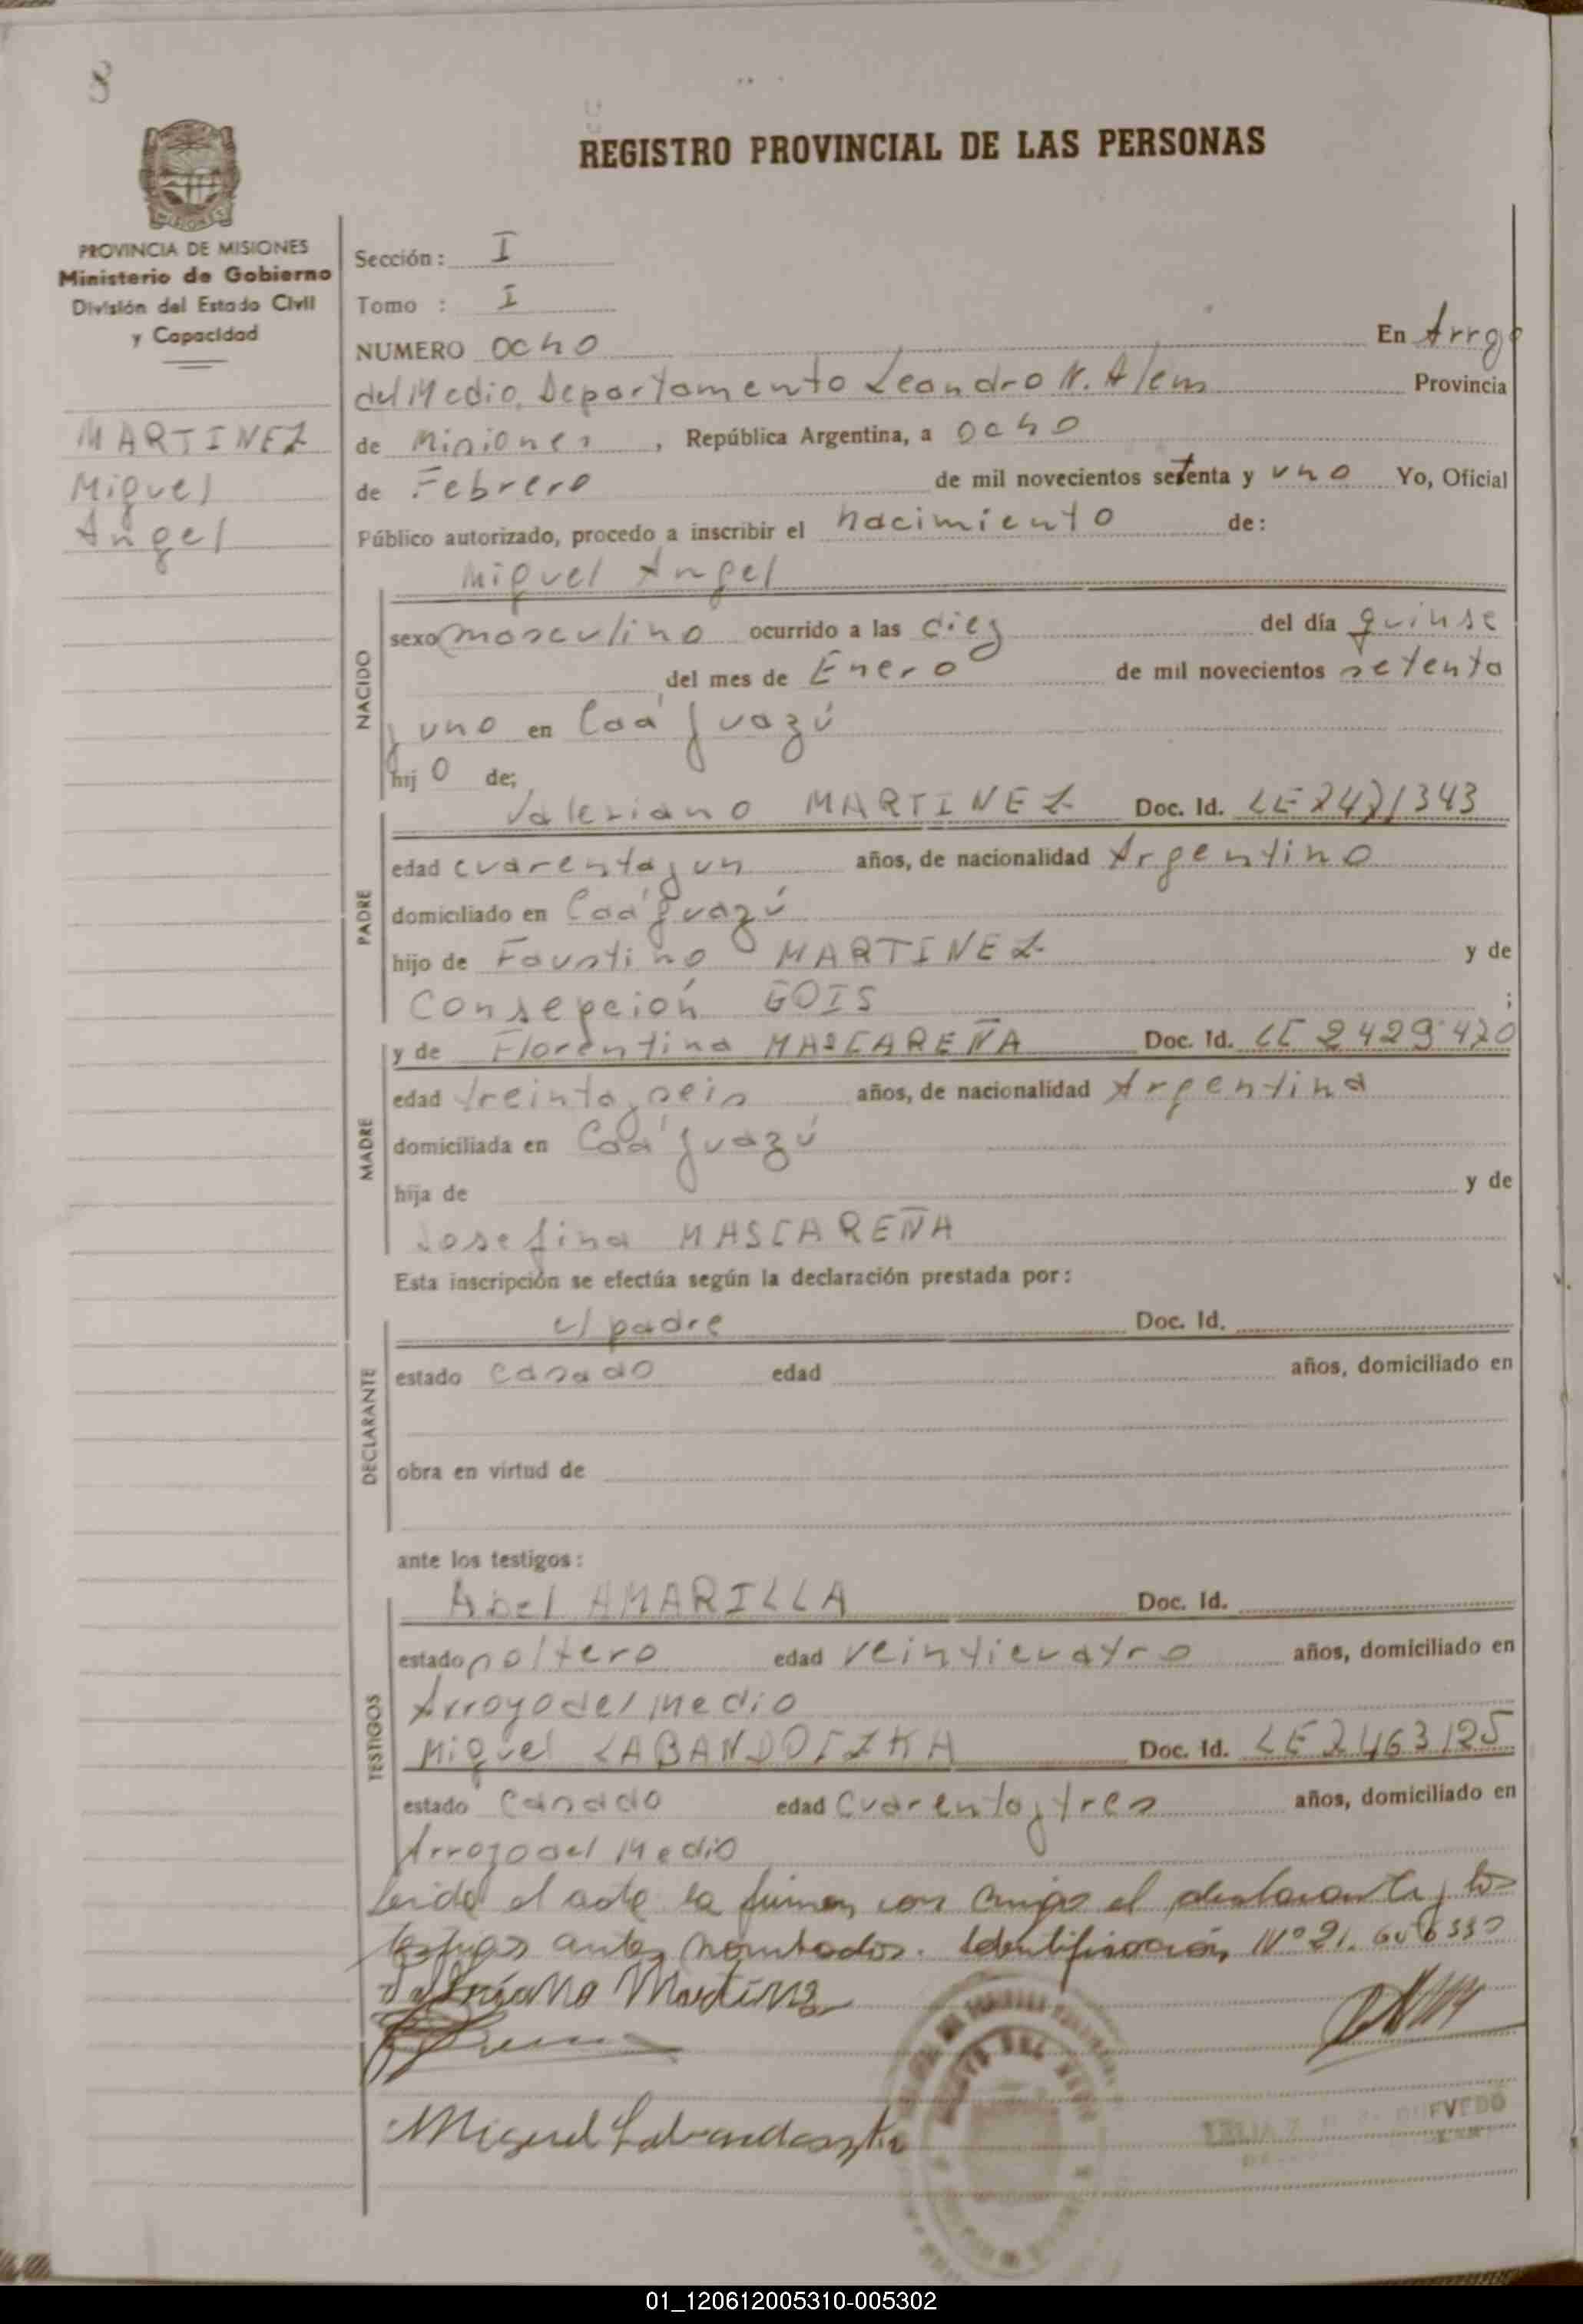 8
REGISTRO PROVINCIAL DE LAS PERSONAS
MISIONES
PROVINCIA DE MISIONES
Ministerio de Gobierno
División del Estado Civil
y Capacidad
MARTINEZ
Miguel
Angel
Sección: I
Tomo : I
NUMERO ocho En Arroyo
del Medio, Departamento Leandro N. Alem Provincia
de Misiones, República Argentina, a ocho
de Febrero de mil novecientos setenta y uno Yo, Oficial
Público autorizado, procedo a inscribir el nacimiento de:
Miguel Angel
NACIDO
sexo masculino ocurrido a las diez del día quinse
del mes de Enero de mil novecientos setenta
y uno en Caá Guazú
hijo de;
PADRE
Valeriano MARTINEZ Doc. Id. LE
edad cuarenta y un años, de nacionalidad Argentino
domiciliado en Caá Guazú
hijo de Faustino MARTINEZ y de
Consepción GOIS ;
MADRE
y de Florentina MASCAREÑA Doc. Id. LC 2429470
edad treinta y seis años, de nacionalidad Argentina
domiciliada en Caá Guazú
hija de y de
Josefina MASCAREÑA
Esta inscripción se efectúa según la declaración prestada por:
DECLARANTE
el padre Doc. Id.
estado casado edad años, domiciliado en
obra en virtud de
ante los testigos:
TESTIGOS
Abel AMARILLA Doc. Id.
estado soltero edad veinticuatro años, domiciliado en
Arroyo del Medio
Miguel LABANDOSZKA Doc. Id. LE 2463125
estado casado edad cuarenta y tres años, domiciliado en
Arroyo del Medio
Leida el acta la firman con migo el declarante y los
testigos antes nombrados. Identificación Nº 21.
Valeriano Martinez
Miguel Labandoszka
QUEVEDO
01_120612005310-005302